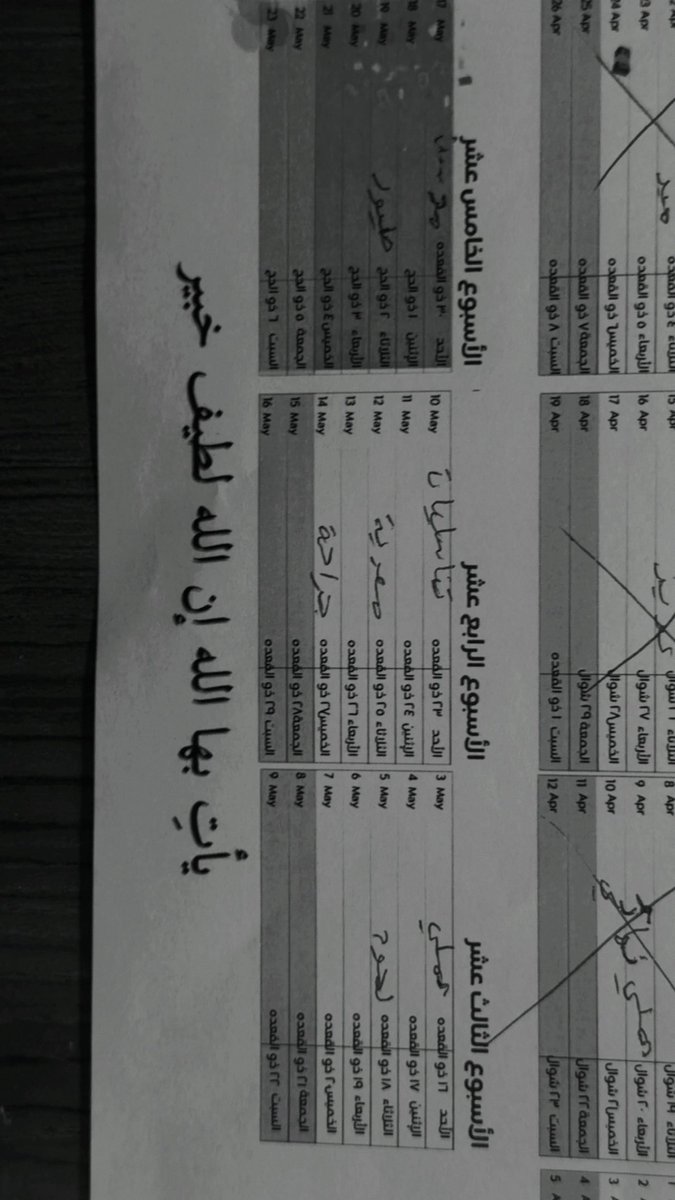 الثلاثاء ١٩ شوال 8 Apr
الأربعاء ٢٠ شوال عملي نهائي 9 Apr
الخميس ٢١ شوال 10 Apr
الجمعة ٢٢ شوال 11 Apr
السبت ٢٣ شوال 12 Apr
الأربعاء ٢٧ شوال 16 Apr
الخميس ٢٨ شوال 17 Apr
الجمعة ٢٩ شوال 18 Apr
السبت ١ ذو القعده 19 Apr
الثلاثاء ٤ ذو القعده
الأربعاء ٥ ذو القعده 23 Apr
الخميس ٦ ذو القعده 24 Apr
الجمعة ٧ ذو القعده 25 Apr
السبت ٨ ذو القعده 26 Apr
الأسبوع الثالث عشر
الأحد ١٦ ذو القعده عملي 3 May
الإثنين ١٧ ذو القعده 4 May
الثلاثاء ١٨ ذو القعده لحوم 5 May
الأربعاء ١٩ ذو القعده 6 May
الخميس ٢٠ ذو القعده 7 May
الجمعة ٢١ ذو القعده 8 May
السبت ٢٢ ذو القعده 9 May
الأسبوع الرابع عشر
الأحد ٢٣ ذو القعده تناسليات 10 May
الإثنين ٢٤ ذو القعده 11 May
الثلاثاء ٢٥ ذو القعده معدية 12 May
الأربعاء ٢٦ ذو القعده 13 May
الخميس ٢٧ ذو القعده جراحة 14 May
الجمعة ٢٨ ذو القعده 15 May
السبت ٢٩ ذو القعده 16 May
الأسبوع الخامس عشر
الأحد ٣٠ ذو القعده 17 May
الإثنين ١ ذو الحج 18 May
الثلاثاء ٢ ذو الحج طيور 19 May
الأربعاء ٣ ذو الحج 20 May
الخميس ٤ ذو الحج 21 May
الجمعة ٥ ذو الحج 22 May
السبت ٦ ذو الحج 23 May
يأتِ بها الله إن الله لطيف خبير